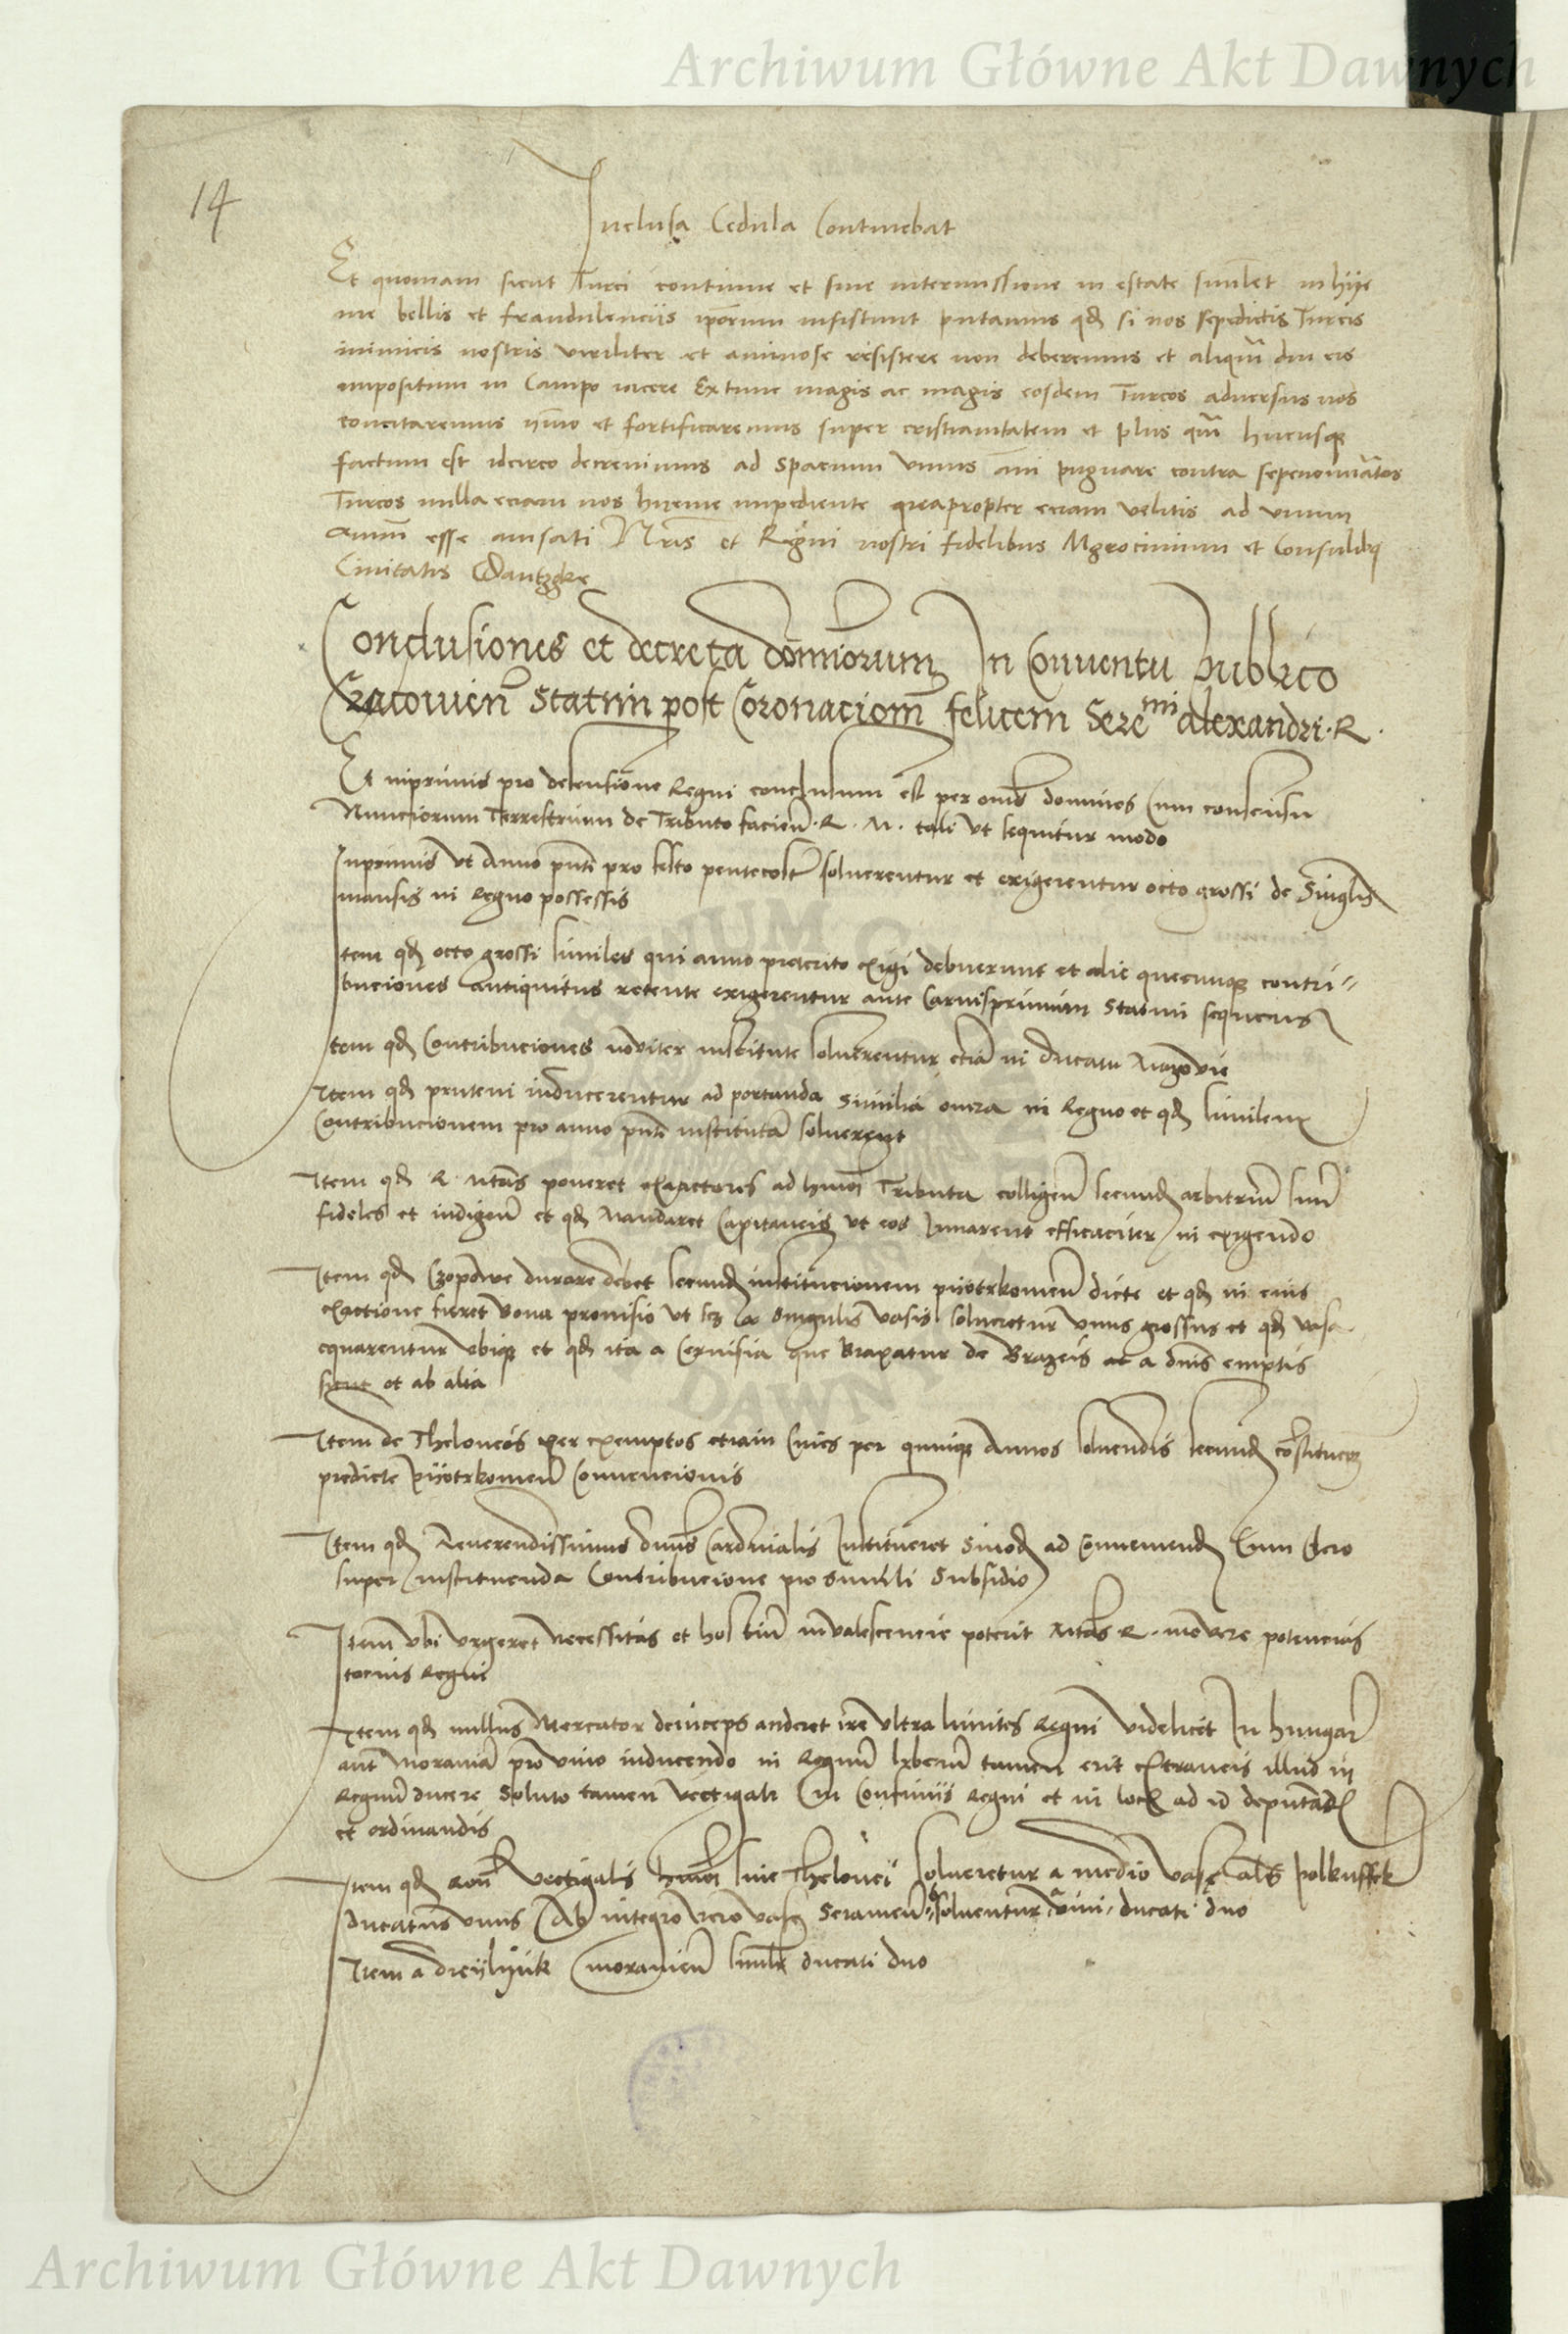 Archiwum Główne Akt Dawnych
14
Inclusa Cedula Continebat
Et quoniam sicut Turci continue et sine intermissione in estate simlet in hije
me bellis et fraudulencijs ipsorum insistunt putamus qd si nos sepedictis Turcis
inimicis nostris viriliter et animose resistere non deberemus et aliqm diu eis
impositum in Campo iacere Extunc magis ac magis eosdem Turcos adversus nos
concitaremus ymo et fortificaremus super cristianitatem et plus qm hucusq
factum est idcirco decrevimus ad spacium unius ani pugnare contra sepenominatos
Turcos nulla eciam nos hieme impediente queapropter eciam velitis ad unum
annum esse avisati Nris et Regni nostri fidelibus Mgrocivium et Consulibq
Civitatis Dantzgke
Conclusiones et decreta dominorum In Conventu publico
Cracovien Statim post Coronaciom felicem Sere mi alexandri R
Et inprimis pro defensione Regni conclusum est per omes dominos Cum consensu
Nunciorum Terrestrium de Tributo facien R M tali ut sequitur modo
Inprimis ut Anno pnti pro festo pentecost solverentur et exigerentur octo grossi de Singlis
mansis in Regno possessis
Item qd octo grossi similes qui anno preterito exigi debuerunt et alie quecunq contri
buciones antiquitus retente exigerentur ante Carnisprivium Statim sequens
Item qd Contribuciones noviter institute solverentur etia in ducatu Mazovie
Item qd pruteni inducerentur ad portanda similia onera in Regno et qd similem
Contribucionem pro anno pnti instituta solverent
Item qd R mtas poneret exactores ad hmoi Tributa colligen secund arbitriu suu
fideles et indigen et qd Mandaret Capitaneis ut eos Iuvarent efficaciter in exigendo
Item qd Czopowe durare debet secund institucionem pijotrkowien dicte et qd in eius
exactione fieret bona provisio ut sz a singulis vasis solveretur unus grossus et qd vasa
equarentur ubiq et qd ita a Cervisia que Braxatur de Brazeis ac a dnis emptis
sicut et ab alia
Item de Theloneis per exemptos etiam Cives per quinq Annos solvendis secund
predicte pijotrkowien Convencionis
Item qd Reverendissimus dnus Cardinalis Institueret Sinod ad Conveniend Cum Clero
super instituenda Contribucione pro simili Subsidio
Item ubi urgeret necessitas et hostiu invalescencie poterit Mtas R movere potencias
tocius Regni
Item qd nullus Mercator deinceps auderet ire ultra limites Regni videlicet In hungar
aut moravia pro vino inducendo in Regnu liberu tamen erit extraneis illud in
Regnu ducere Soluto tamen vectigali in Confinijs Regni et in loc ad id deputad
et ordinandis
Item qd vectigalis hmoi sive Thelonei solveretur a medio vase als polkuffek
ducatus unus Ab integro vero vase solventur vini ducati duo
Item a dreijlijnk moravien similr ducati duo
Archiwum Główne Akt Dawnych